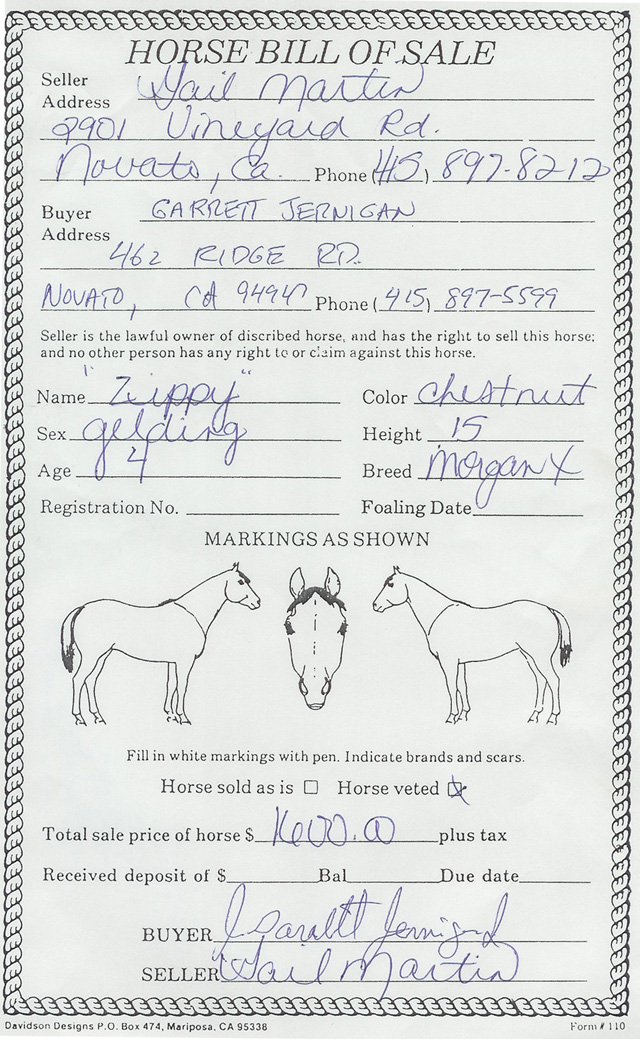 HORSE BILL OF SALE
Seller Gail Martin
Address
2901 Vineyard Rd.
Novato, Ca. Phone (415) 897-8212
Buyer GARRETT JERNIGAN
Address
462 RIDGE RD.
NOVATO, CA 94947 Phone (415) 897-5599
Seller is the lawful owner of discribed horse, and has the right to sell this horse;
and no other person has any right to or claim against this horse.
Name "Zippy" Color Chestnut
Sex gelding Height 15
Age 4 Breed Morgan X
Registration No. Foaling Date
MARKINGS AS SHOWN
Fill in white markings with pen. Indicate brands and scars.
Horse sold as is ☐ Horse veted ☒
Total sale price of horse $ 1600.00 plus tax
Received deposit of $ Bal Due date
BUYER Jernigan
SELLER Gail Martin
Davidson Designs P.O. Box 474, Mariposa, CA 95338 Form # 110